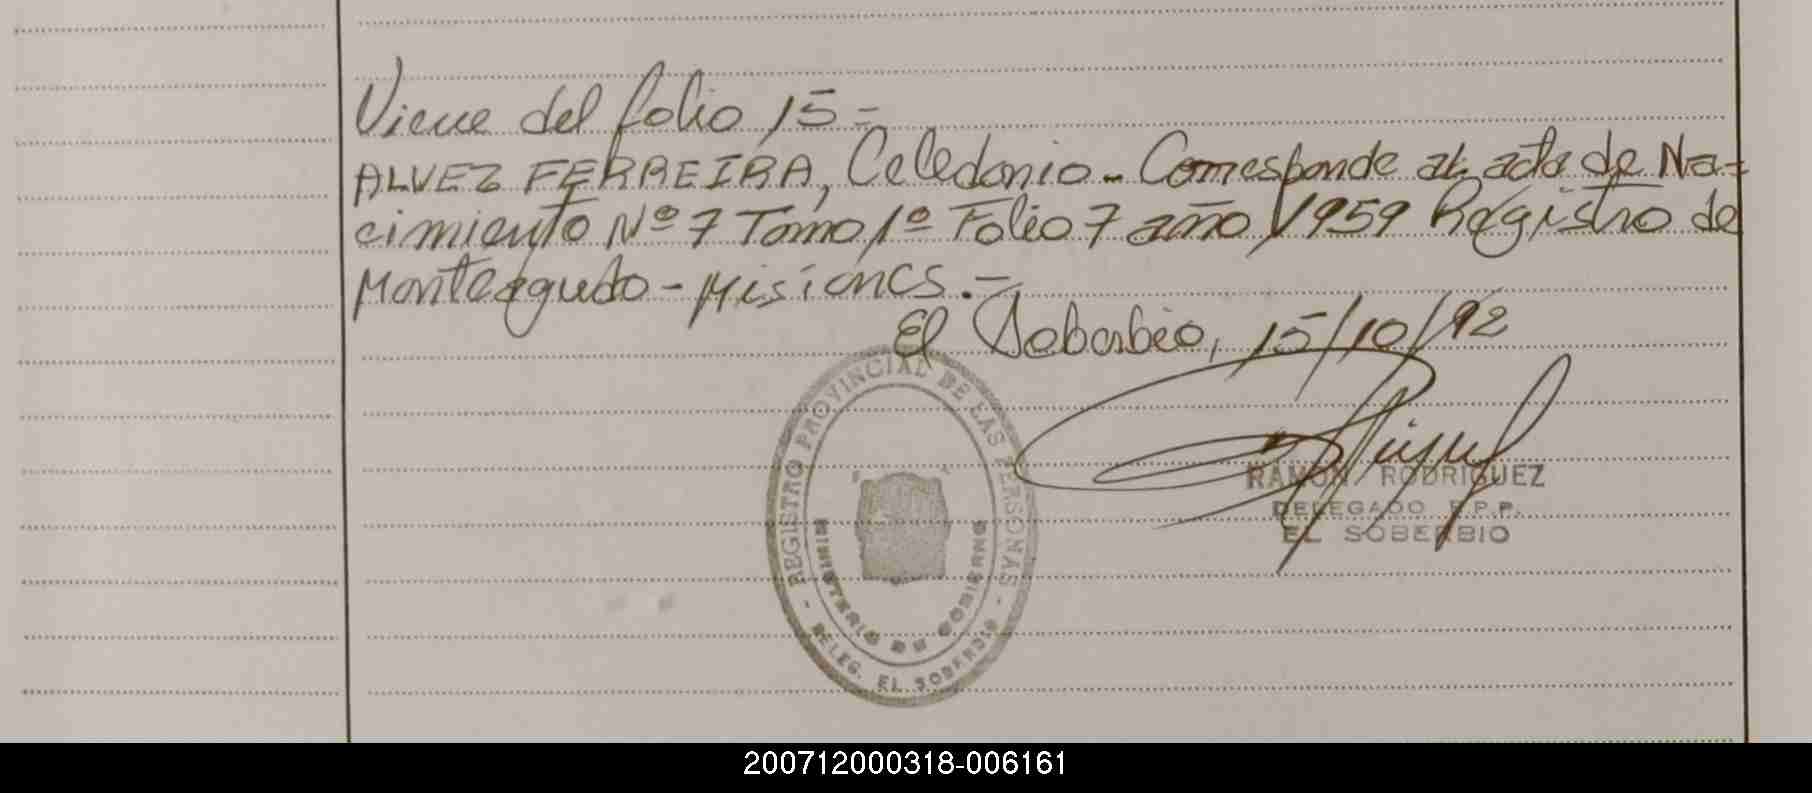 Viene del folio 15-
ALVEZ FERREIRA, Celedonio - Corresponde al acta de Na-
cimiento Nº 7 Tomo 1º Folio 7 año 1959 Registro de
Monteagudo - Misiones.-
El Soberbio, 15/10/92
REGISTRO PROVINCIAL DE LAS PERSONAS
MINISTERIO DE GOBIERNO
- DELEG. EL SOBERBIO -
RAMON RODRIGUEZ
DELEGADO R.P.P.
EL SOBERBIO
200712000318-006161